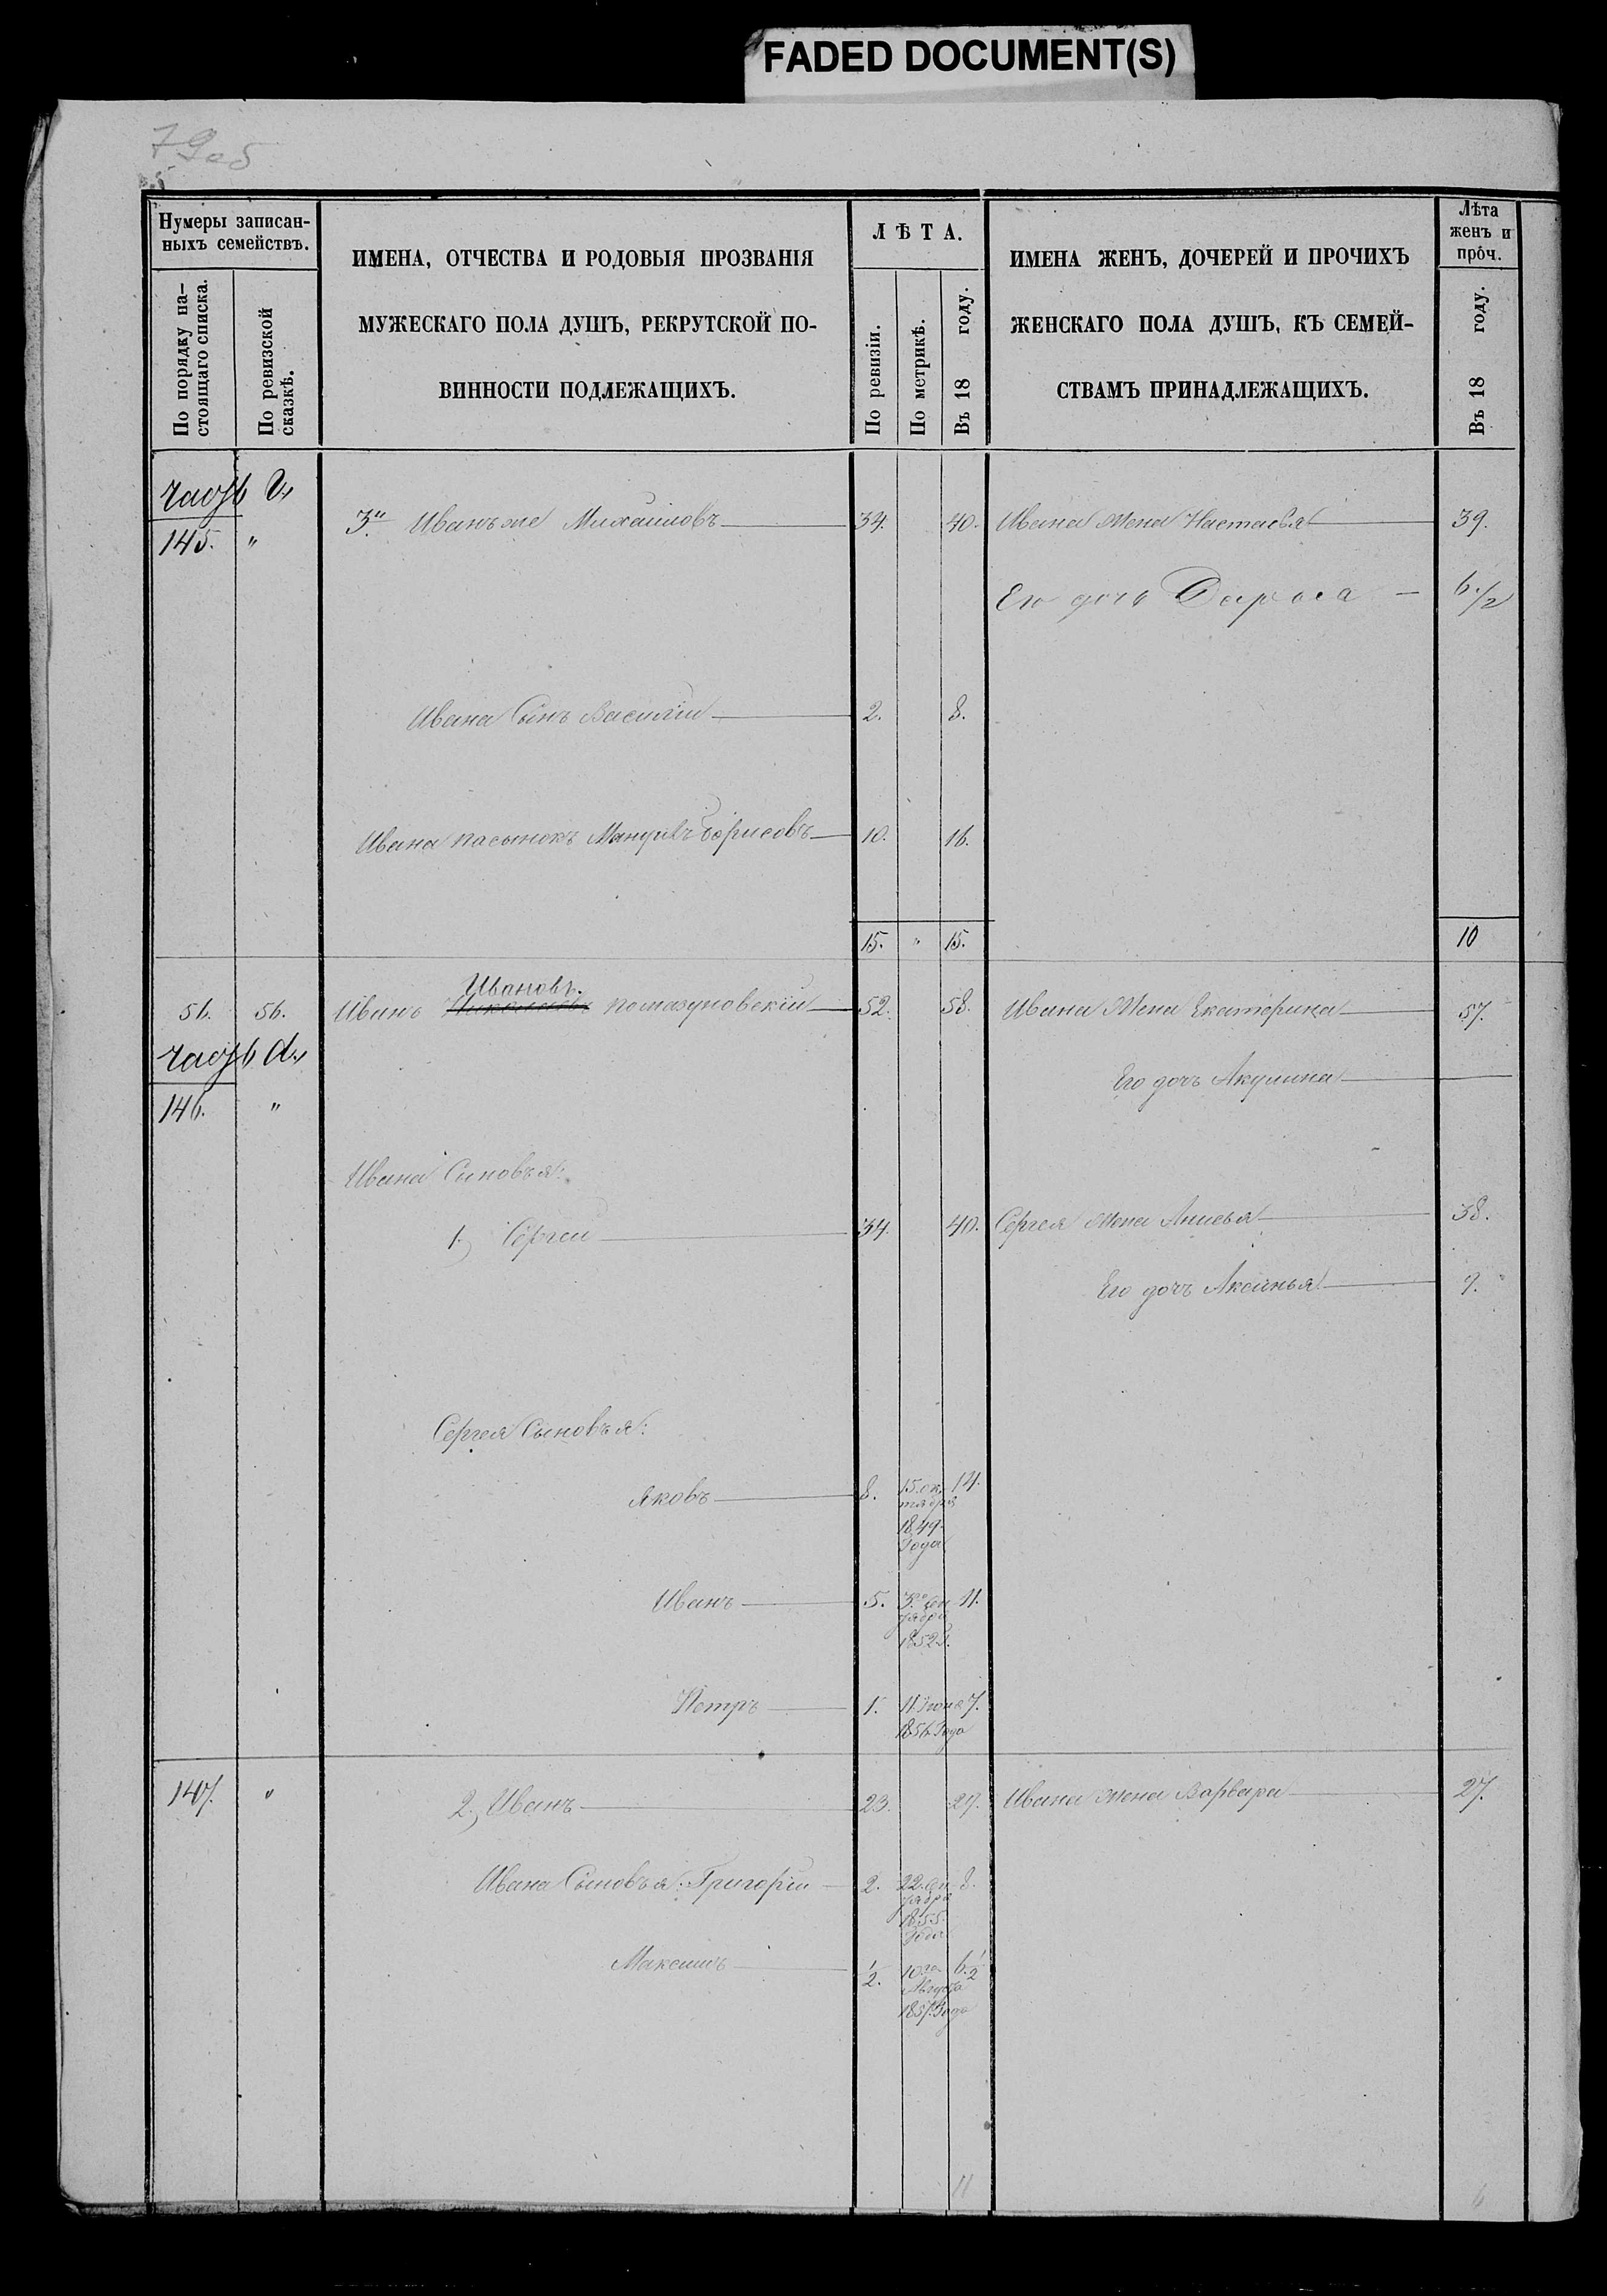 FADED DOCUMENT(S)
79об
Нумеры записан-
ныхъ семействъ.
По порядку на-
стоящаго списка.
По ревизской
сказкѣ.
ИМЕНА, ОТЧЕСТВА И РОДОВЫЯ ПРОЗВАНІЯ
МУЖЕСКАГО ПОЛА ДУШЪ, РЕКРУТСКОЙ ПО-
ВИННОСТИ ПОДЛЕЖАЩИХЪ.
ЛѢТА.
По ревизіи.
По метрикѣ.
Въ 18 году.
ИМЕНА ЖЕНЪ, ДОЧЕРЕЙ И ПРОЧИХЪ
ЖЕНСКАГО ПОЛА ДУШЪ, КЪ СЕМЕЙ-
СТВАМЪ ПРИНАДЛЕЖАЩИХЪ.
Лѣта
женъ и
проч.
Въ 18 году.
часть
145. "
3й Иванъ же Михаиловъ 34. 40. Ивана Жена Настасья 39.
Его дочь 6 1/2
Ивана Сынъ Василій 2. 8.
Ивана пасынокъ Борисовъ 10. 16.
15. " 15. 10
Ивановъ.
56. 56. Иванъ помазуновскій 52. 58. Ивана Жена Екатерина 57.
часть
Его дочь Акулина
146. "
Ивана Сыновья:
1. Сергей 34. 40. Сергея Жена Анисья 38.
Его дочь Аксинья 9.
Сергея Сыновья:
Яковъ 8. 15. ок- 14.
тября
1849
Года
Иванъ 5. 3го 11.
1852
Петръ 1. 11 Iюня 7.
1856 Года
147. " 2. Иванъ 23. 29. Ивана Жена Варвара 27.
Ивана Сыновья: Григорій 2. 22. 8.
1855
Года
Максимъ 1/2. 10го 6. 1/2
Августа
1857 Года
11
6